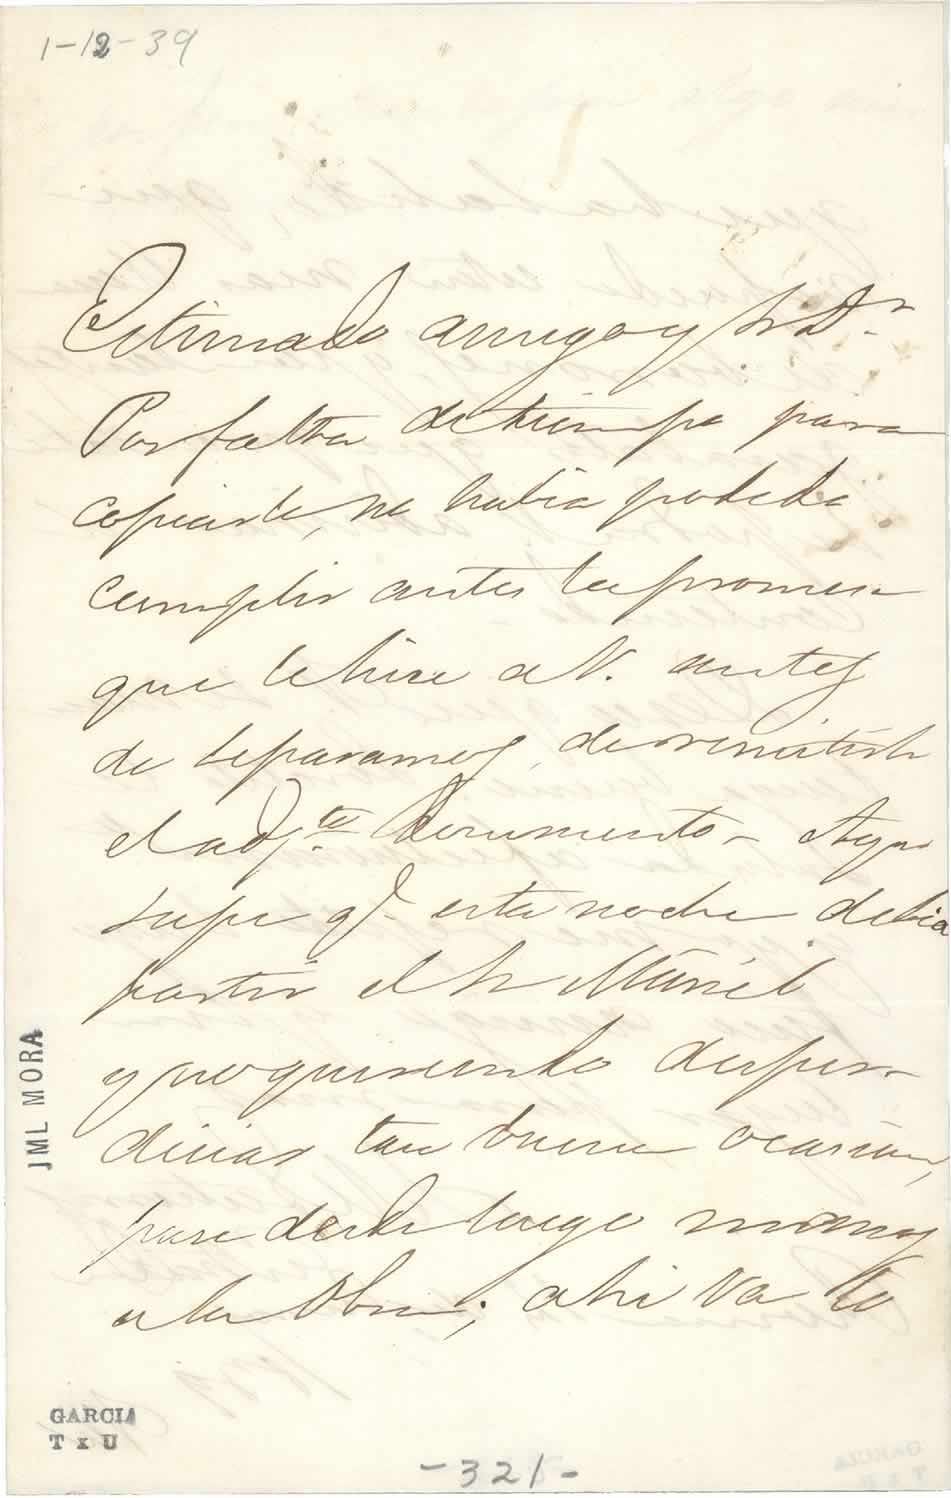 1-12-39
Estimado amigo y Sr. Dr.
Por falta de tiempo para
copiarle, no habia podido
cumplir antes la promesa
que le hice a V. antes
de separarnos, de remitirle
el adj.to documento - Ayer
supe q.e esta noche debia
partir el Sr Muriel
y no queriendo desper-
diciar tan buena ocasion,
puse desde luego manos
a la Obra; ahi va lo
JML MORA
GARCIA
T x U
-321-